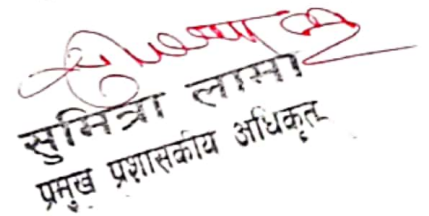 सुमित्रा लामा
प्रमुख प्रशासकीय अधिकृत